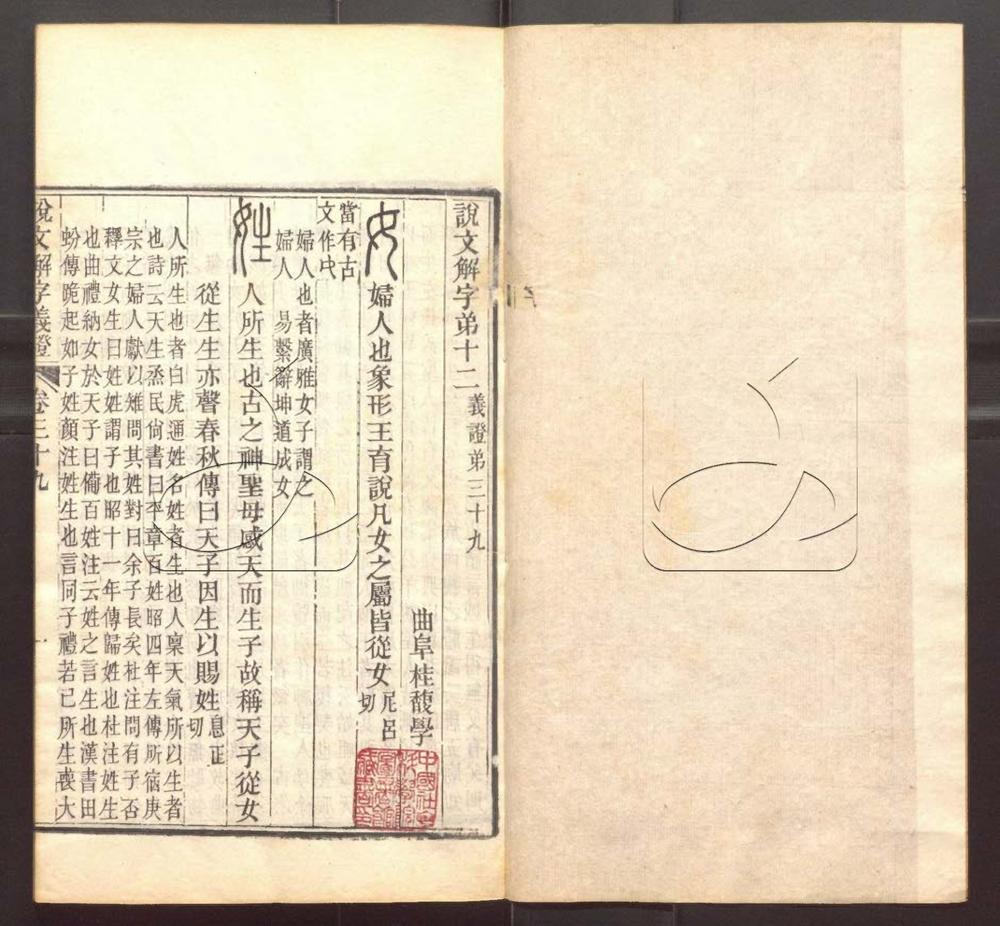 說文解字弟十二 義證弟三十九
曲阜桂馥學
女 婦人也象形王育說凡女之屬皆從女 尼呂切
當有古
文作𡚦
婦人也者廣雅女子謂之
婦人 易繫辭坤道成女
姓 人所生也古之神聖母感天而生子故稱天子從女
從生生亦聲春秋傳曰天子因生以賜姓 息正切
人所生也者白虎通姓名姓者生也人稟天氣所以生者
也詩云天生烝民尙書曰平章百姓昭四年左傳所宿庚
宗之婦人獻以雉問其姓對曰余子長矣杜注問有子否
釋文女生曰姓姓謂子也昭十一年傳歸姓也杜注姓生
也曲禮納女於天子曰備百姓注云姓之言生也漢書田
蚡傳跪起如子姓顏注姓生也言同子禮若己所生喪大
說文解字義證 卷三十九 一